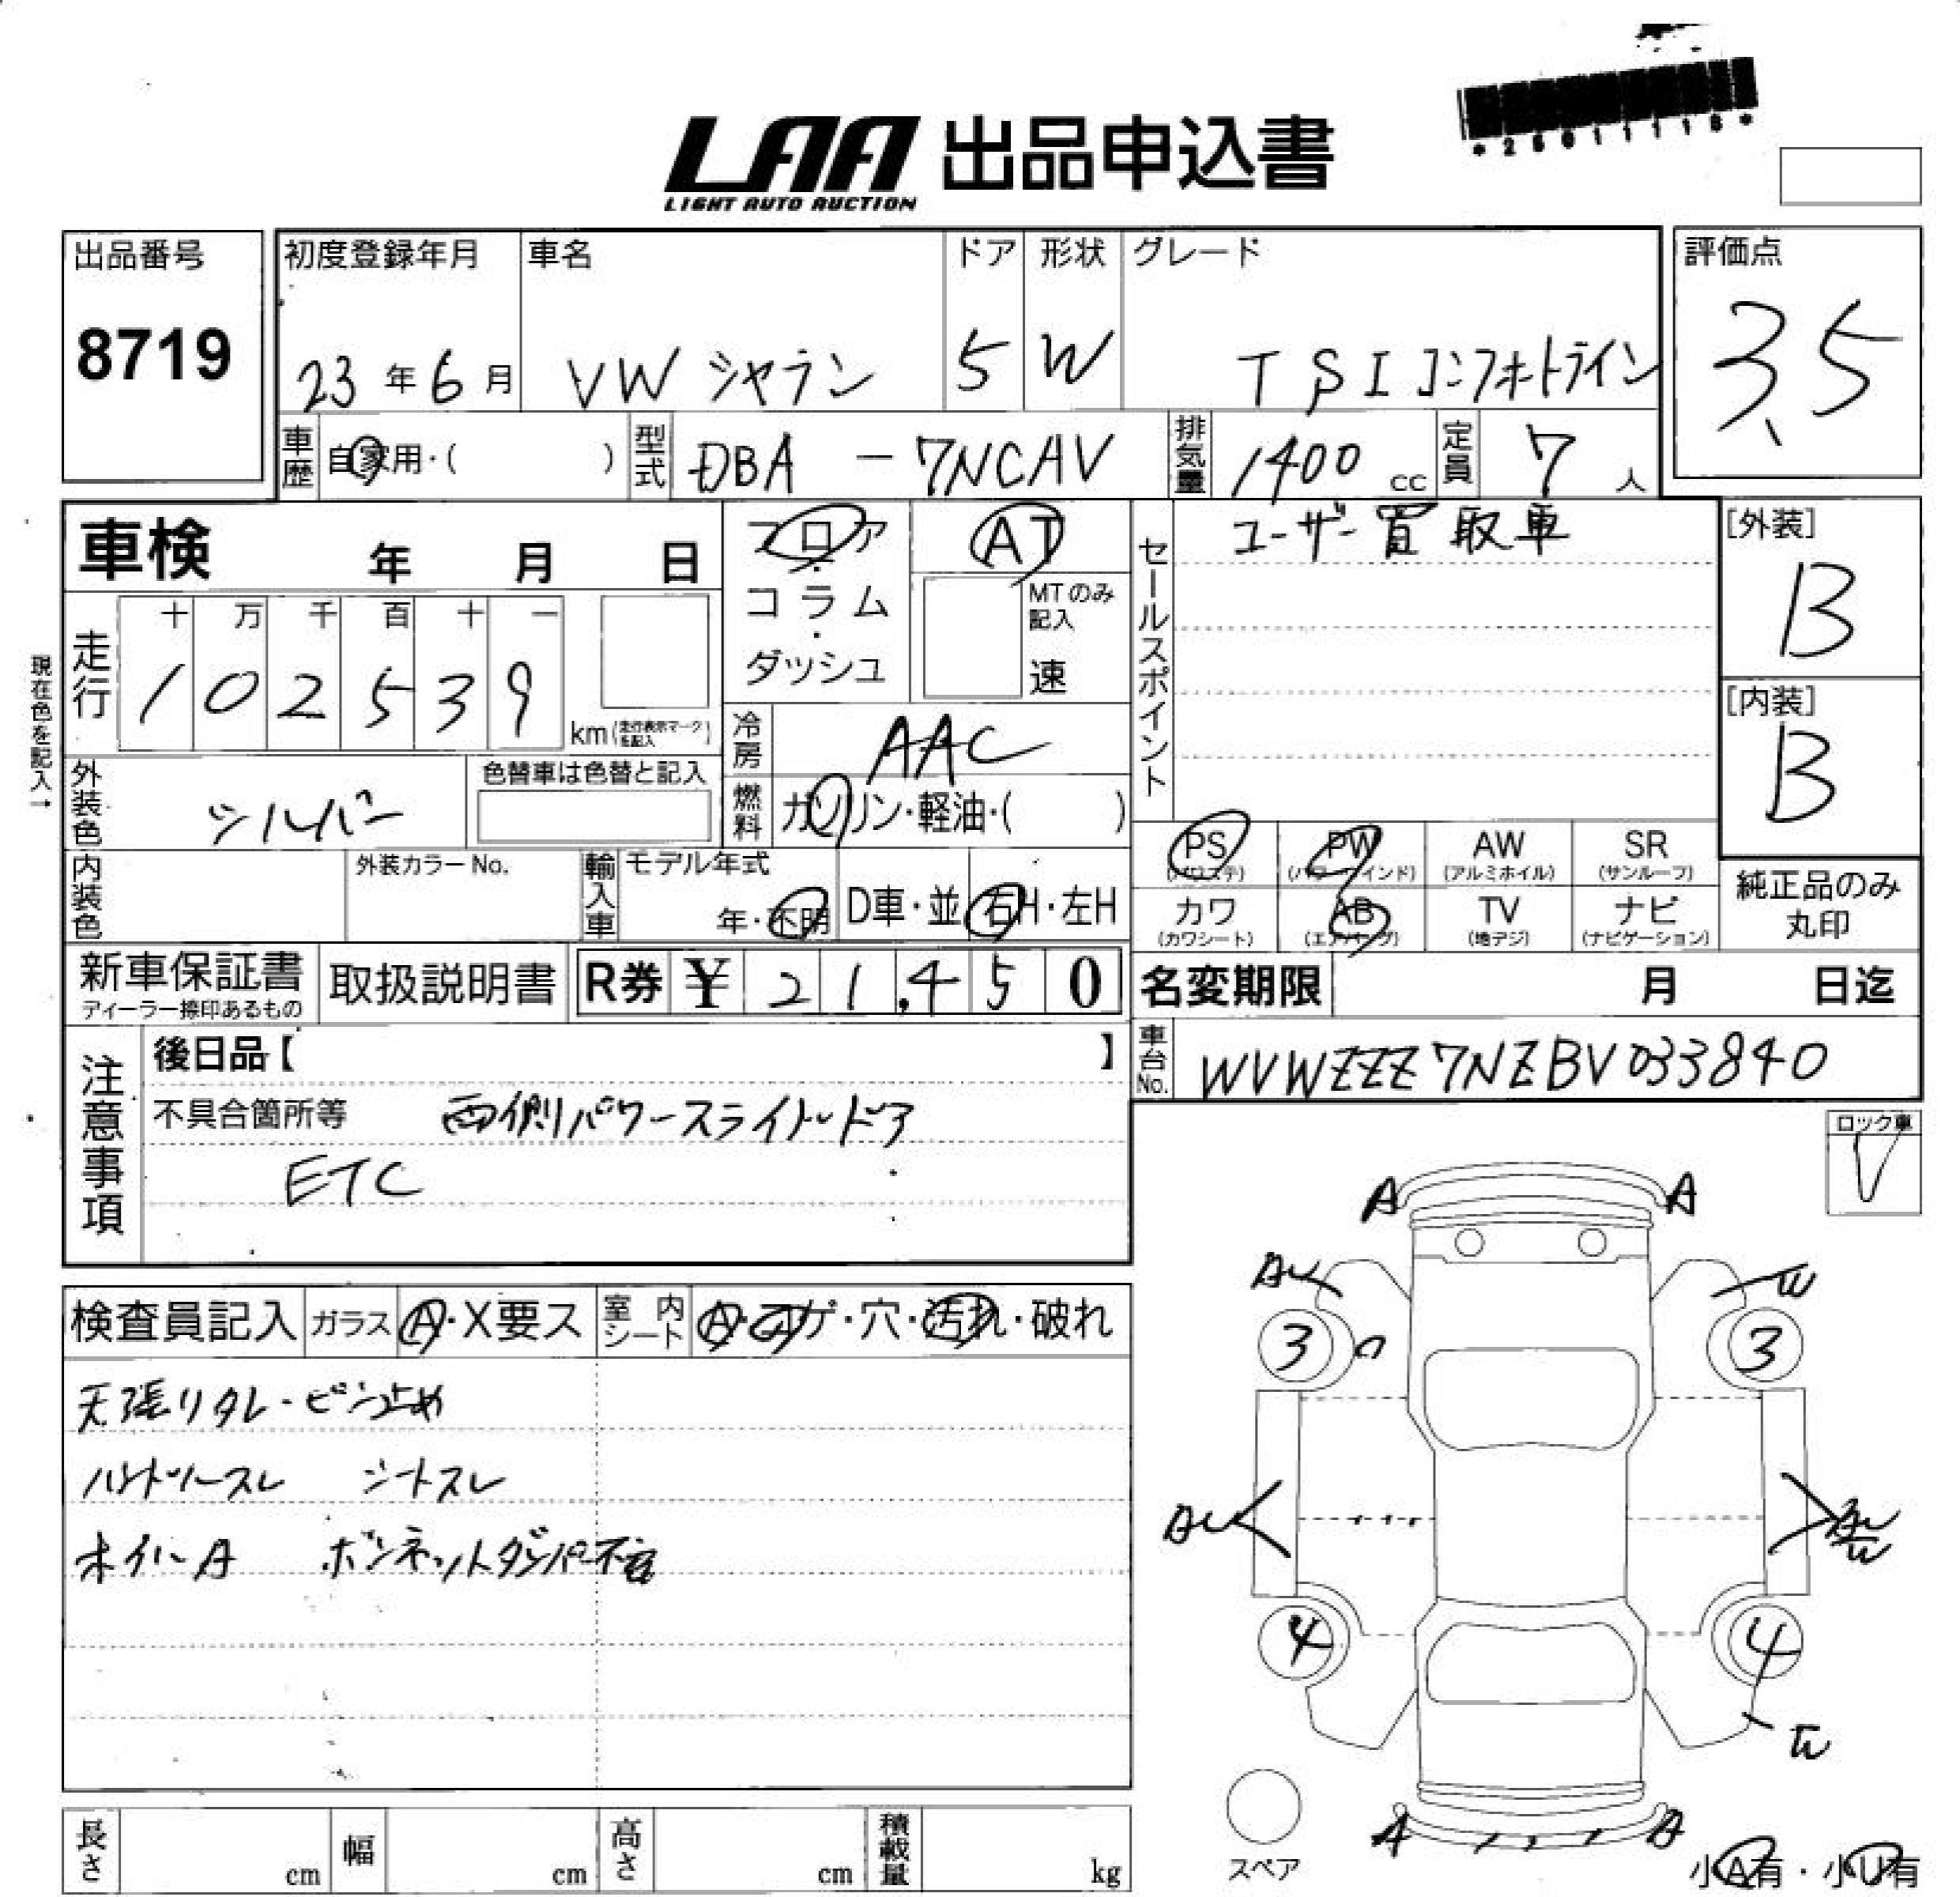 LAA 出品申込書
LIGHT AUTO AUCTION
*25011118*
出品番号 8719
初度登録年月 23年6月
車名 VW シャラン
ドア 5
形状 W
グレード TSI コンフォートライン
評価点 3.5
車歴 自家用・( )
型式 DBA - 7NCAV
排気量 1400 cc
定員 7 人
車検 年 月 日
フロア・コラム・ダッシュ
AT
MTのみ記入 速
セールスポイント ユーザー買取車
[外装] B
[内装] B
現在色を記入→
走行 十 万 千 百 十 一
1 0 2 5 3 9 km(走行表示マークを記入)
冷房 AAC
燃料 ガソリン・軽油・( )
外装色 シルバー
色替車は色替と記入
内装色
外装カラーNo.
輸入車 モデル年式 年・不明
D車・並 右H・左H
PS (パワステ) PW (パワーウインド) AW (アルミホイル) SR (サンルーフ)
カワ (カワシート) AB (エアバッグ) TV (地デジ) ナビ (ナビゲーション)
純正品のみ丸印
新車保証書
ディーラー捺印あるもの
取扱説明書
R券 ¥ 21,450
名変期限 月 日迄
車台No. WVWZZZ7NZBV033840
注意事項
後日品【 】
不具合箇所等 両側パワースライドドア
ETC
ロック車 V
検査員記入 ガラス A・X要ス 室内シート A・コゲ・穴・汚れ・破れ
天張りタレ・ピン止め
ハンドルスレ シートスレ
ホイルA ボンネットダンパー不良
A A
AU W
3 3
AU AU W
4 4
W
A A
スペア
小A有・小U有
長さ cm 幅 cm 高さ cm 積載量 kg